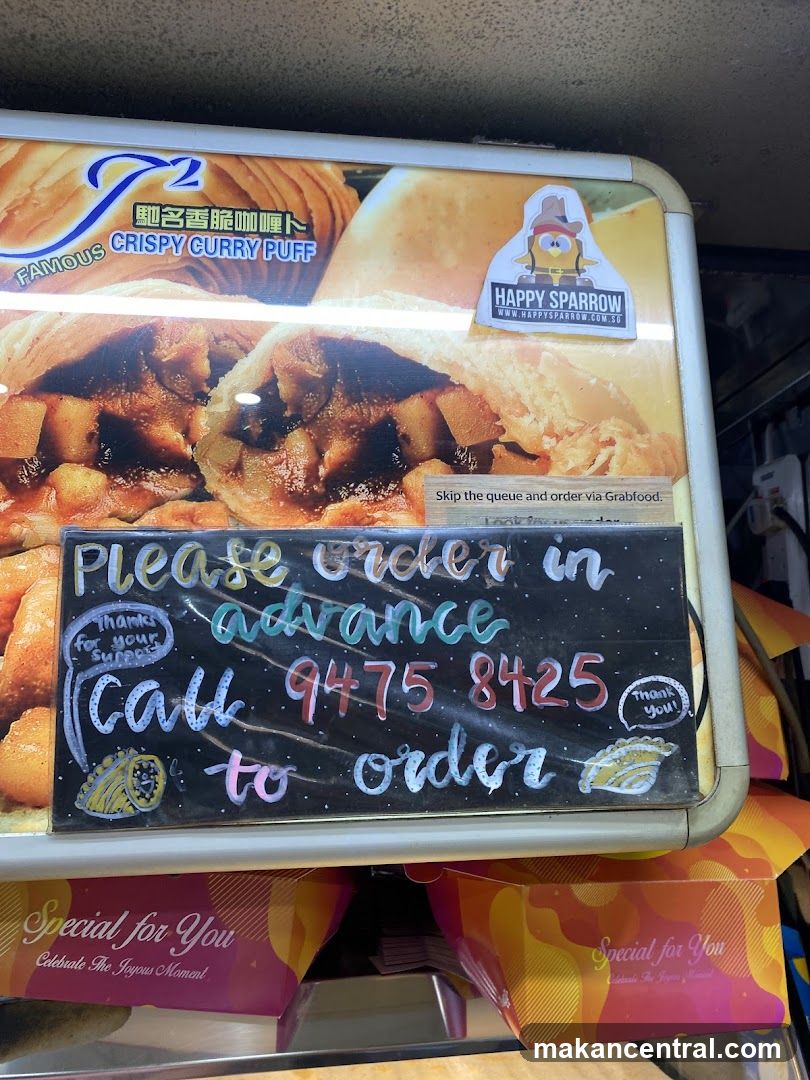 J2
馳名香脆咖喱卜
FAMOUS CRISPY CURRY PUFF
HAPPY SPARROW
WWW.HAPPYSPARROW.COM.SG
Skip the queue and order via Grabfood.
Please order in
advance
Thanks
for your
support
Call 9475 8425
Thank
you!
to order
Special for You
Celebrate The Joyous Moment
Special for You
Celebrate The Joyous Moment
makancentral.com